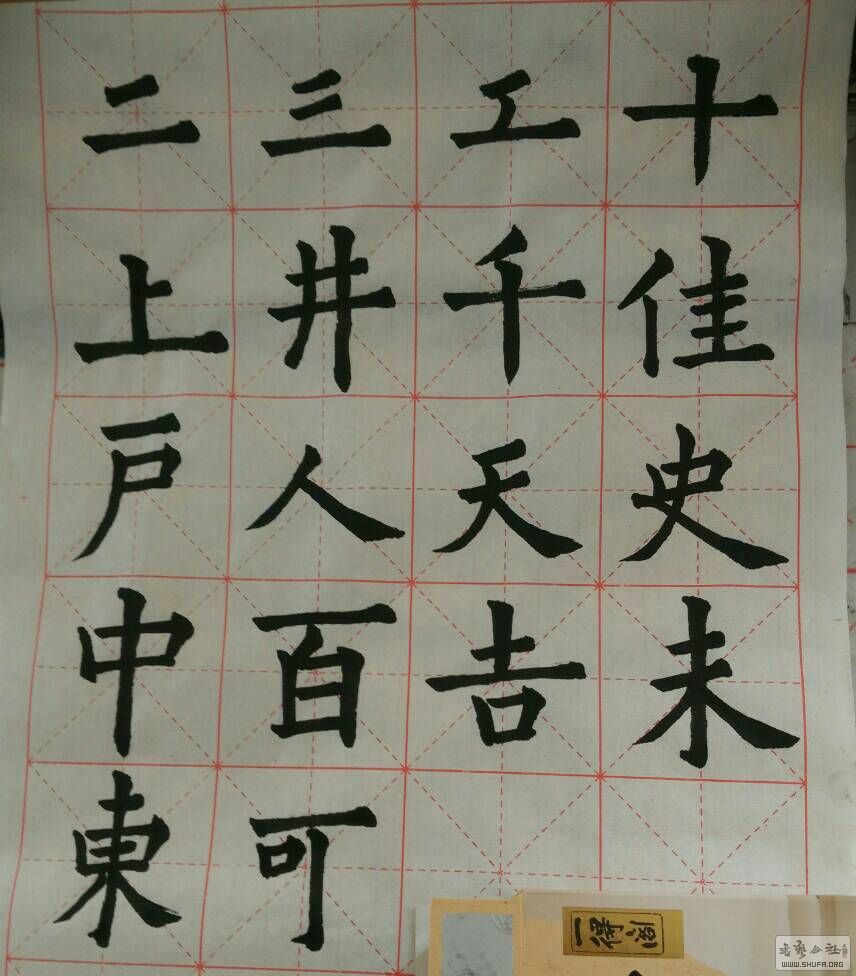 二三工十
上井千佳
戸人天史
中百吉未
東可
一得阁
书艺公社
WWW.SHUFA.ORG